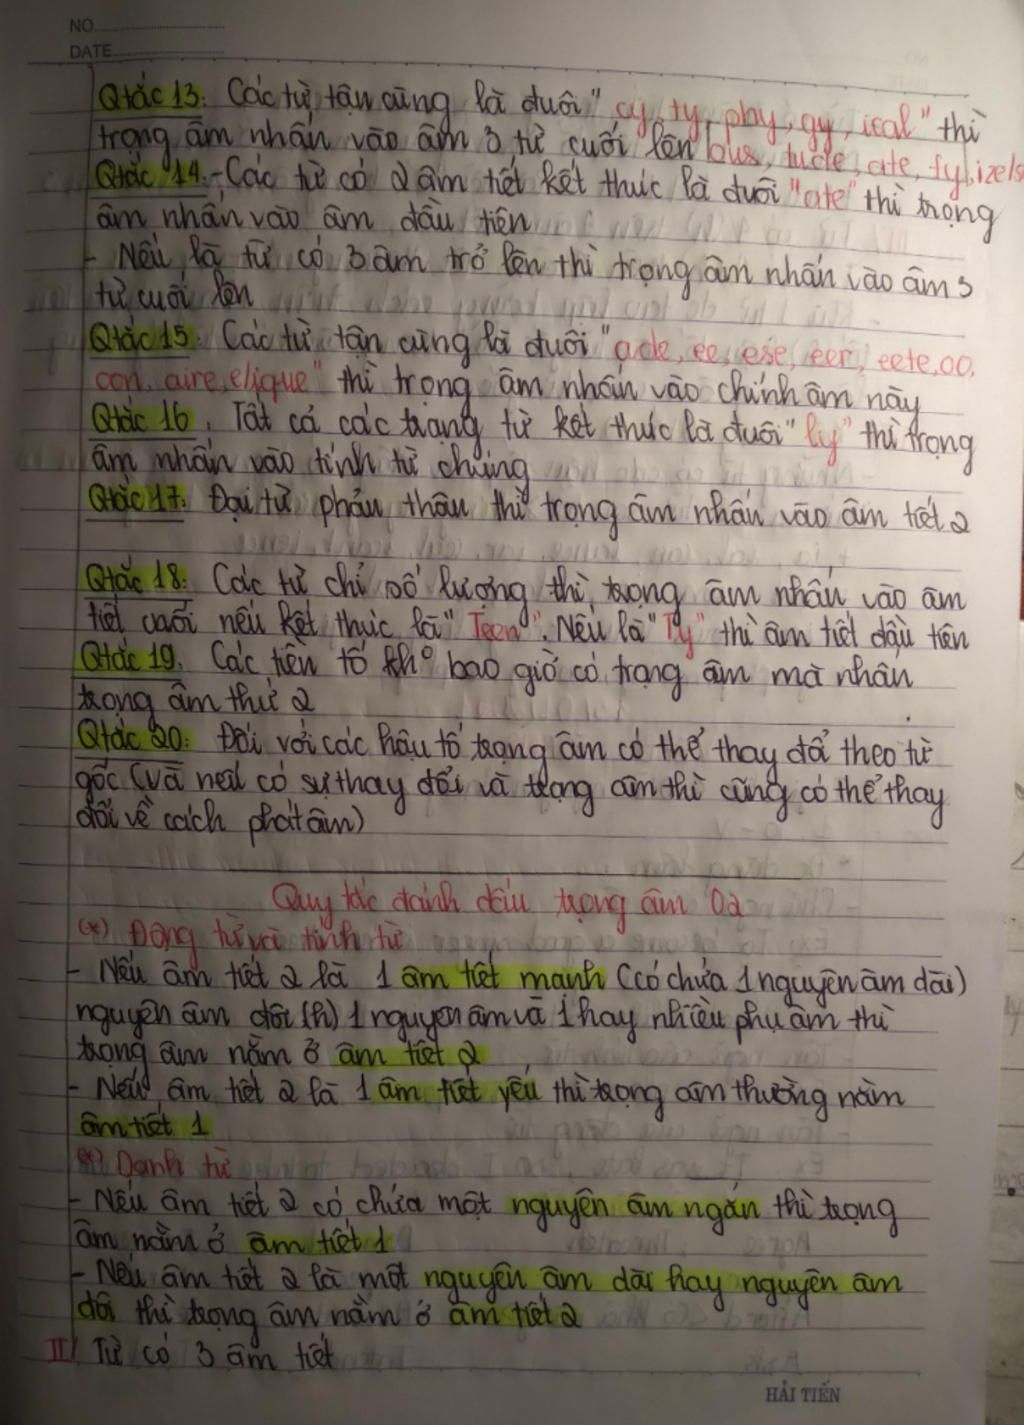 NO
DATE
Qtắc 13: Các từ tận cùng là đuôi "cy, ty, phy, gy, ical" thì
trọng âm nhấn vào âm 3 từ cuối lên ate, fy, ize
Qtắc 14: - Các từ có 2 âm tiết kết thúc là đuôi "ate" thì trọng
âm nhấn vào âm đầu tiên
- Nếu là từ có 3 âm trở lên thì trọng âm nhấn vào âm 3
từ cuối lên
Qtắc 15: Các từ tận cùng là đuôi "ade, ee, ese, eer, eete, oo,
oon, aire, ique" thì trọng âm nhấn vào chính âm này
Qtắc 16. Tất cả các trạng từ kết thúc là đuôi "ly" thì trọng
âm nhấn vào tính từ chúng
Qtắc 17: Đại từ phản thân thì trọng âm nhấn vào âm tiết 2
Qtắc 18: Các từ chỉ số lượng thì trọng âm nhấn vào âm
tiết cuối nếu kết thúc là "Teen". Nếu là "Ty" thì âm tiết đầu tiên
Qtắc 19. Các tiền tố kh° bao giờ có trọng âm mà nhấn
trọng âm thứ 2
Qtắc 20: Đối với các hậu tố trọng âm có thể thay đổi theo từ
gốc (và nếu có sự thay đổi về trọng âm thì cũng có thể thay
đổi về cách phát âm)
Quy tắc đánh dấu trọng âm 02
(*) Động từ và tính từ
- Nếu âm tiết 2 là 1 âm tiết mạnh (có chứa 1 nguyên âm dài)
nguyên âm đôi (h) 1 nguyên âm và 1 hay nhiều phụ âm thì
trọng âm nằm ở âm tiết 2
- Nếu âm tiết 2 là 1 âm tiết yếu thì trọng âm thường nằm
âm tiết 1
(*) Danh từ
- Nếu âm tiết 2 có chứa một nguyên âm ngắn thì trọng
âm nằm ở âm tiết 1
- Nếu âm tiết 2 là một nguyên âm dài hay nguyên âm
đôi thì trọng âm nằm ở âm tiết 2
II/ Từ có 3 âm tiết
HẢI TIẾN